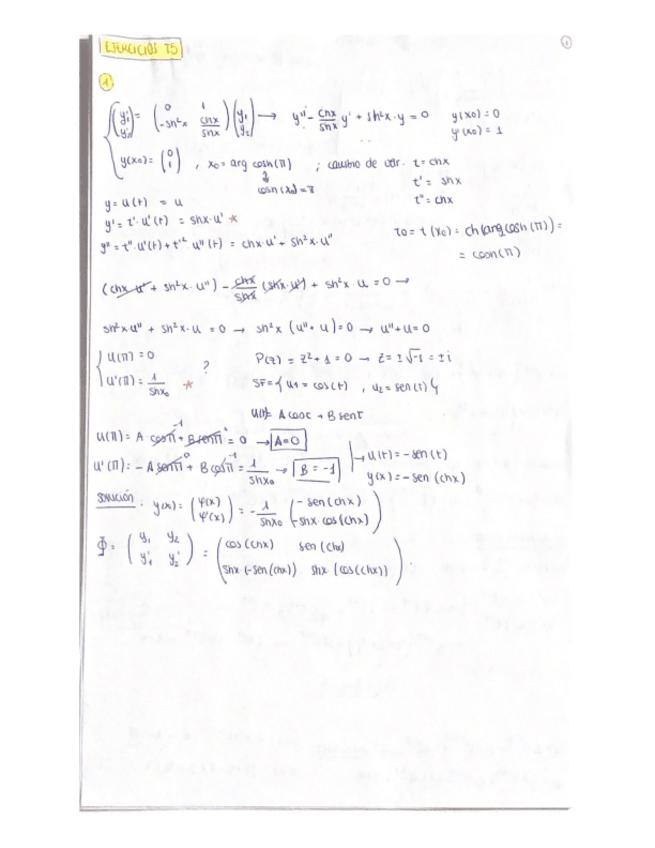 EJERCICIOS T5
1
1.
(y1' y2') = (0 1 -sh²x chx/shx)(y1 y2) → y'' - chx/shx y' + sh²x·y = 0 y(x0) = 0
y'(x0) = 1
y(x0) = (0 1), x0 = arg cosh(π) ; cambio de var. t = chx
cosh(x0) = π t' = shx
t'' = chx
y = u(t) = u
y' = t'·u'(t) = shx·u' *
y'' = t''·u'(t) + t'²u''(t) = chx·u' + sh²x·u'' t0 = t(x0) = ch(arg cosh(π)) =
= cosh(π)
(chx·u' + sh²x·u'') - chx/shx (shx·u') + sh²x·u = 0 →
sh²x u'' + sh²x·u = 0 → sh²x (u'' + u) = 0 → u'' + u = 0
u(π) = 0 P(z) = z² + 1 = 0 → z = ±√-1 = ±i
u'(π) = 1/shx0 * ? SF = { u1 = cos(t), u2 = sen(t) }
u(t) = A cost + B sent
u(π) = A cosπ -1 + B senπ 0 = 0 → A = 0
u'(π) = -A senπ 0 + B cosπ -1 = 1/shx0 → B = -1 → u(t) = -sen(t)
y(x) = -sen(chx)
SOLUCIÓN: y(x) = (φ(x) φ'(x)) = -1/shx0 (-sen(chx) -shx·cos(chx))
Φ = (y1 y2 y1' y2') = (cos(chx) sen(chx) shx(-sen(chx)) shx(cos(chx)))